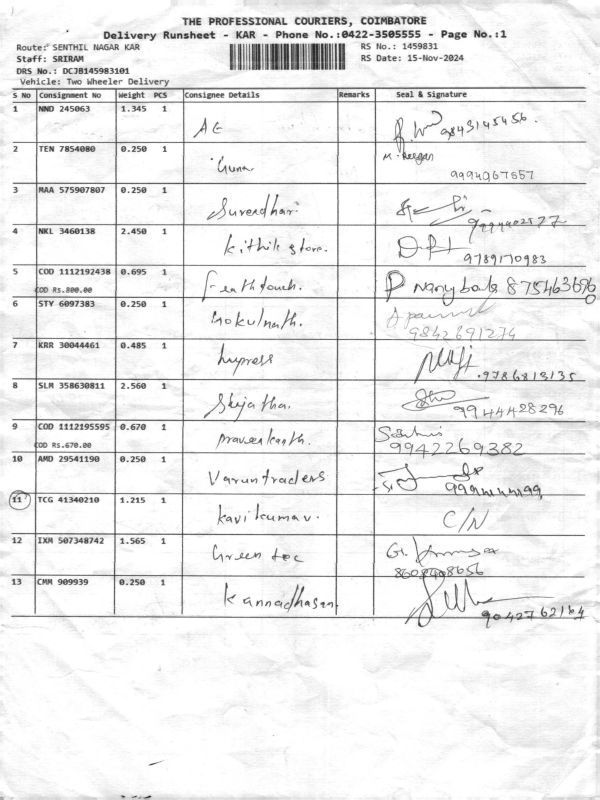 THE PROFESSIONAL COURIERS, COIMBATORE
Delivery Runsheet - KAR - Phone No.:0422-3505555 - Page No.:1
Route: SENTHIL NAGAR KAR
RS No.: 1459831
Staff: SRIRAM
RS Date: 15-Nov-2024
DRS No.: DCJB145983101
Vehicle: Two Wheeler Delivery
S No Consignment No Weight PCS Consignee Details Remarks Seal & Signature
1 NND 245063 1.345 1 AE 9843145456.
2 TEN 7854080 0.250 1 Guna. M. Reegan
9994967557
3 MAA 575907807 0.250 1 Surendhar
4 NKL 3460138 2.450 1 Kithik store. 9789170983
5 COD 1112192438 0.695 1 Feathtouch.
COD Rs.800.00
6 STY 6097383 0.250 1 Gokulnath.
9842691274
7 KRR 30044461 0.485 1 Impress .9786813135
8 SLM 358630811 2.560 1
9944428296
9 COD 1112195595 0.670 1 Praveenkanth.
COD Rs.670.00 9942269382
10 AMD 29541190 0.250 1 Varuntraders
11 TCG 41340210 1.215 1 Kavikumar. C/N
12 IXM 507348742 1.565 1 Green toc
8608408656
13 CMM 909939 0.250 1 Kannadhasan.
9042762164